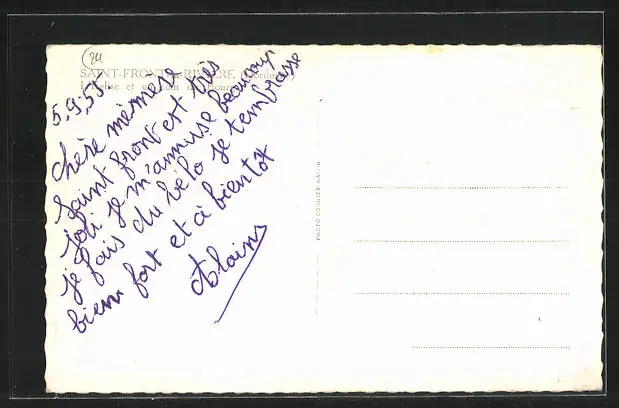 24
SAINT-FRONT-la-RIVIÈRE (Dordogne)
L'Eglise et un coin du Bourg
5.9.57
chère mémère
Saint front est très
joli je m'amuse beaucoup
je fais du vélo je t'embrasse
bien fort et à bientot
Alain
PHOTO CORDIER